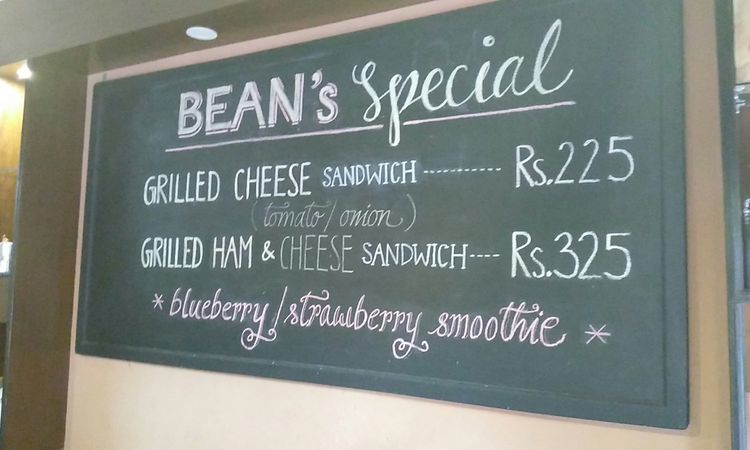 BEAN's Special
GRILLED CHEESE SANDWICH ---------- Rs.225
(tomato/onion)
GRILLED HAM & CHEESE SANDWICH ---- Rs.325
* blueberry/strawberry smoothie *